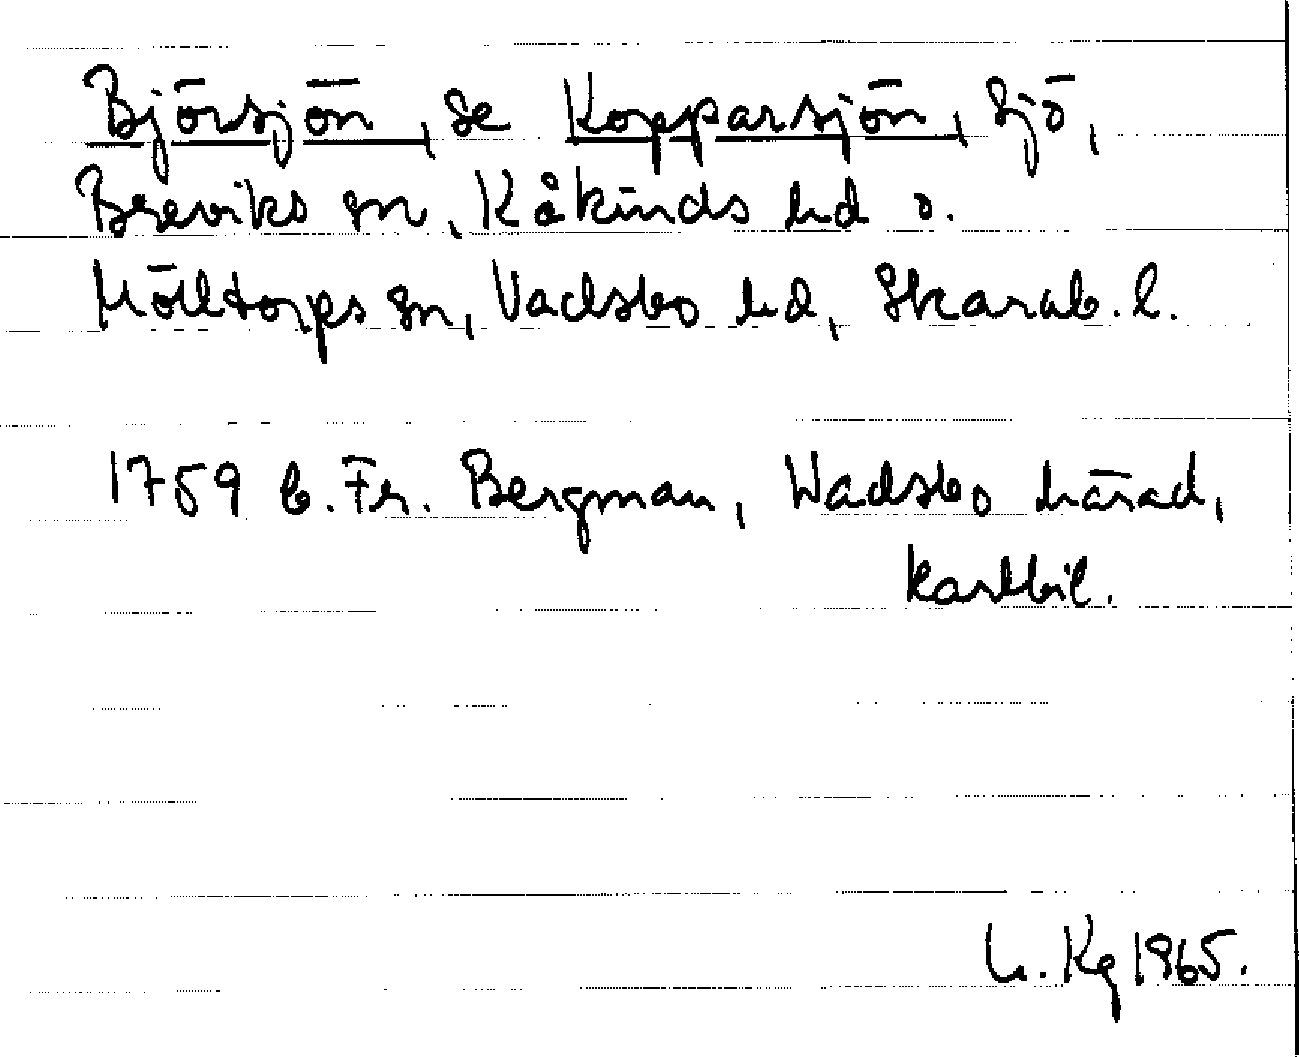 Björsjön, se Kopparsjön, sjö,
Breviks sn, Kåkinds hd o.
Mölltorps sn, Vadsbo hd, Skarab. l.
1759 b. Fr. Bergman, Wadsbo härad,
kartbil.
Kg 1965.